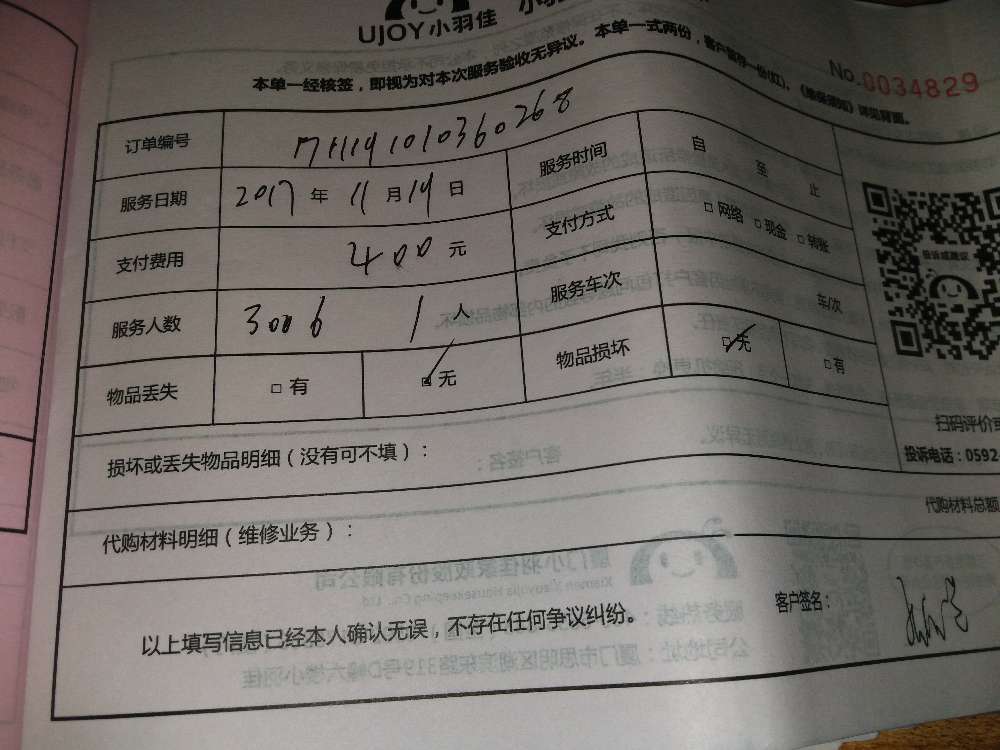 UJOY小羽佳
No.0034829
本单一经核签，即视为对本次服务验收无异议。本单一式两份，客户留存一份(红)，《维保须知》详见背面。
订单编号 711141010360268
服务日期 2017 年 11 月 14 日 服务时间 自 至 止
支付费用 400 元 支付方式 □网络 □现金 □转账
服务人数 3006 1 人 服务车次 车/次
物品丢失 □有 ☑无 物品损坏 ☑无 □有
投诉或建议
扫码评价或
投诉电话：0592-
损坏或丢失物品明细（没有可不填）：
代购材料总额
代购材料明细（维修业务）：
以上填写信息已经本人确认无误，不存在任何争议纠纷。
客户签名：